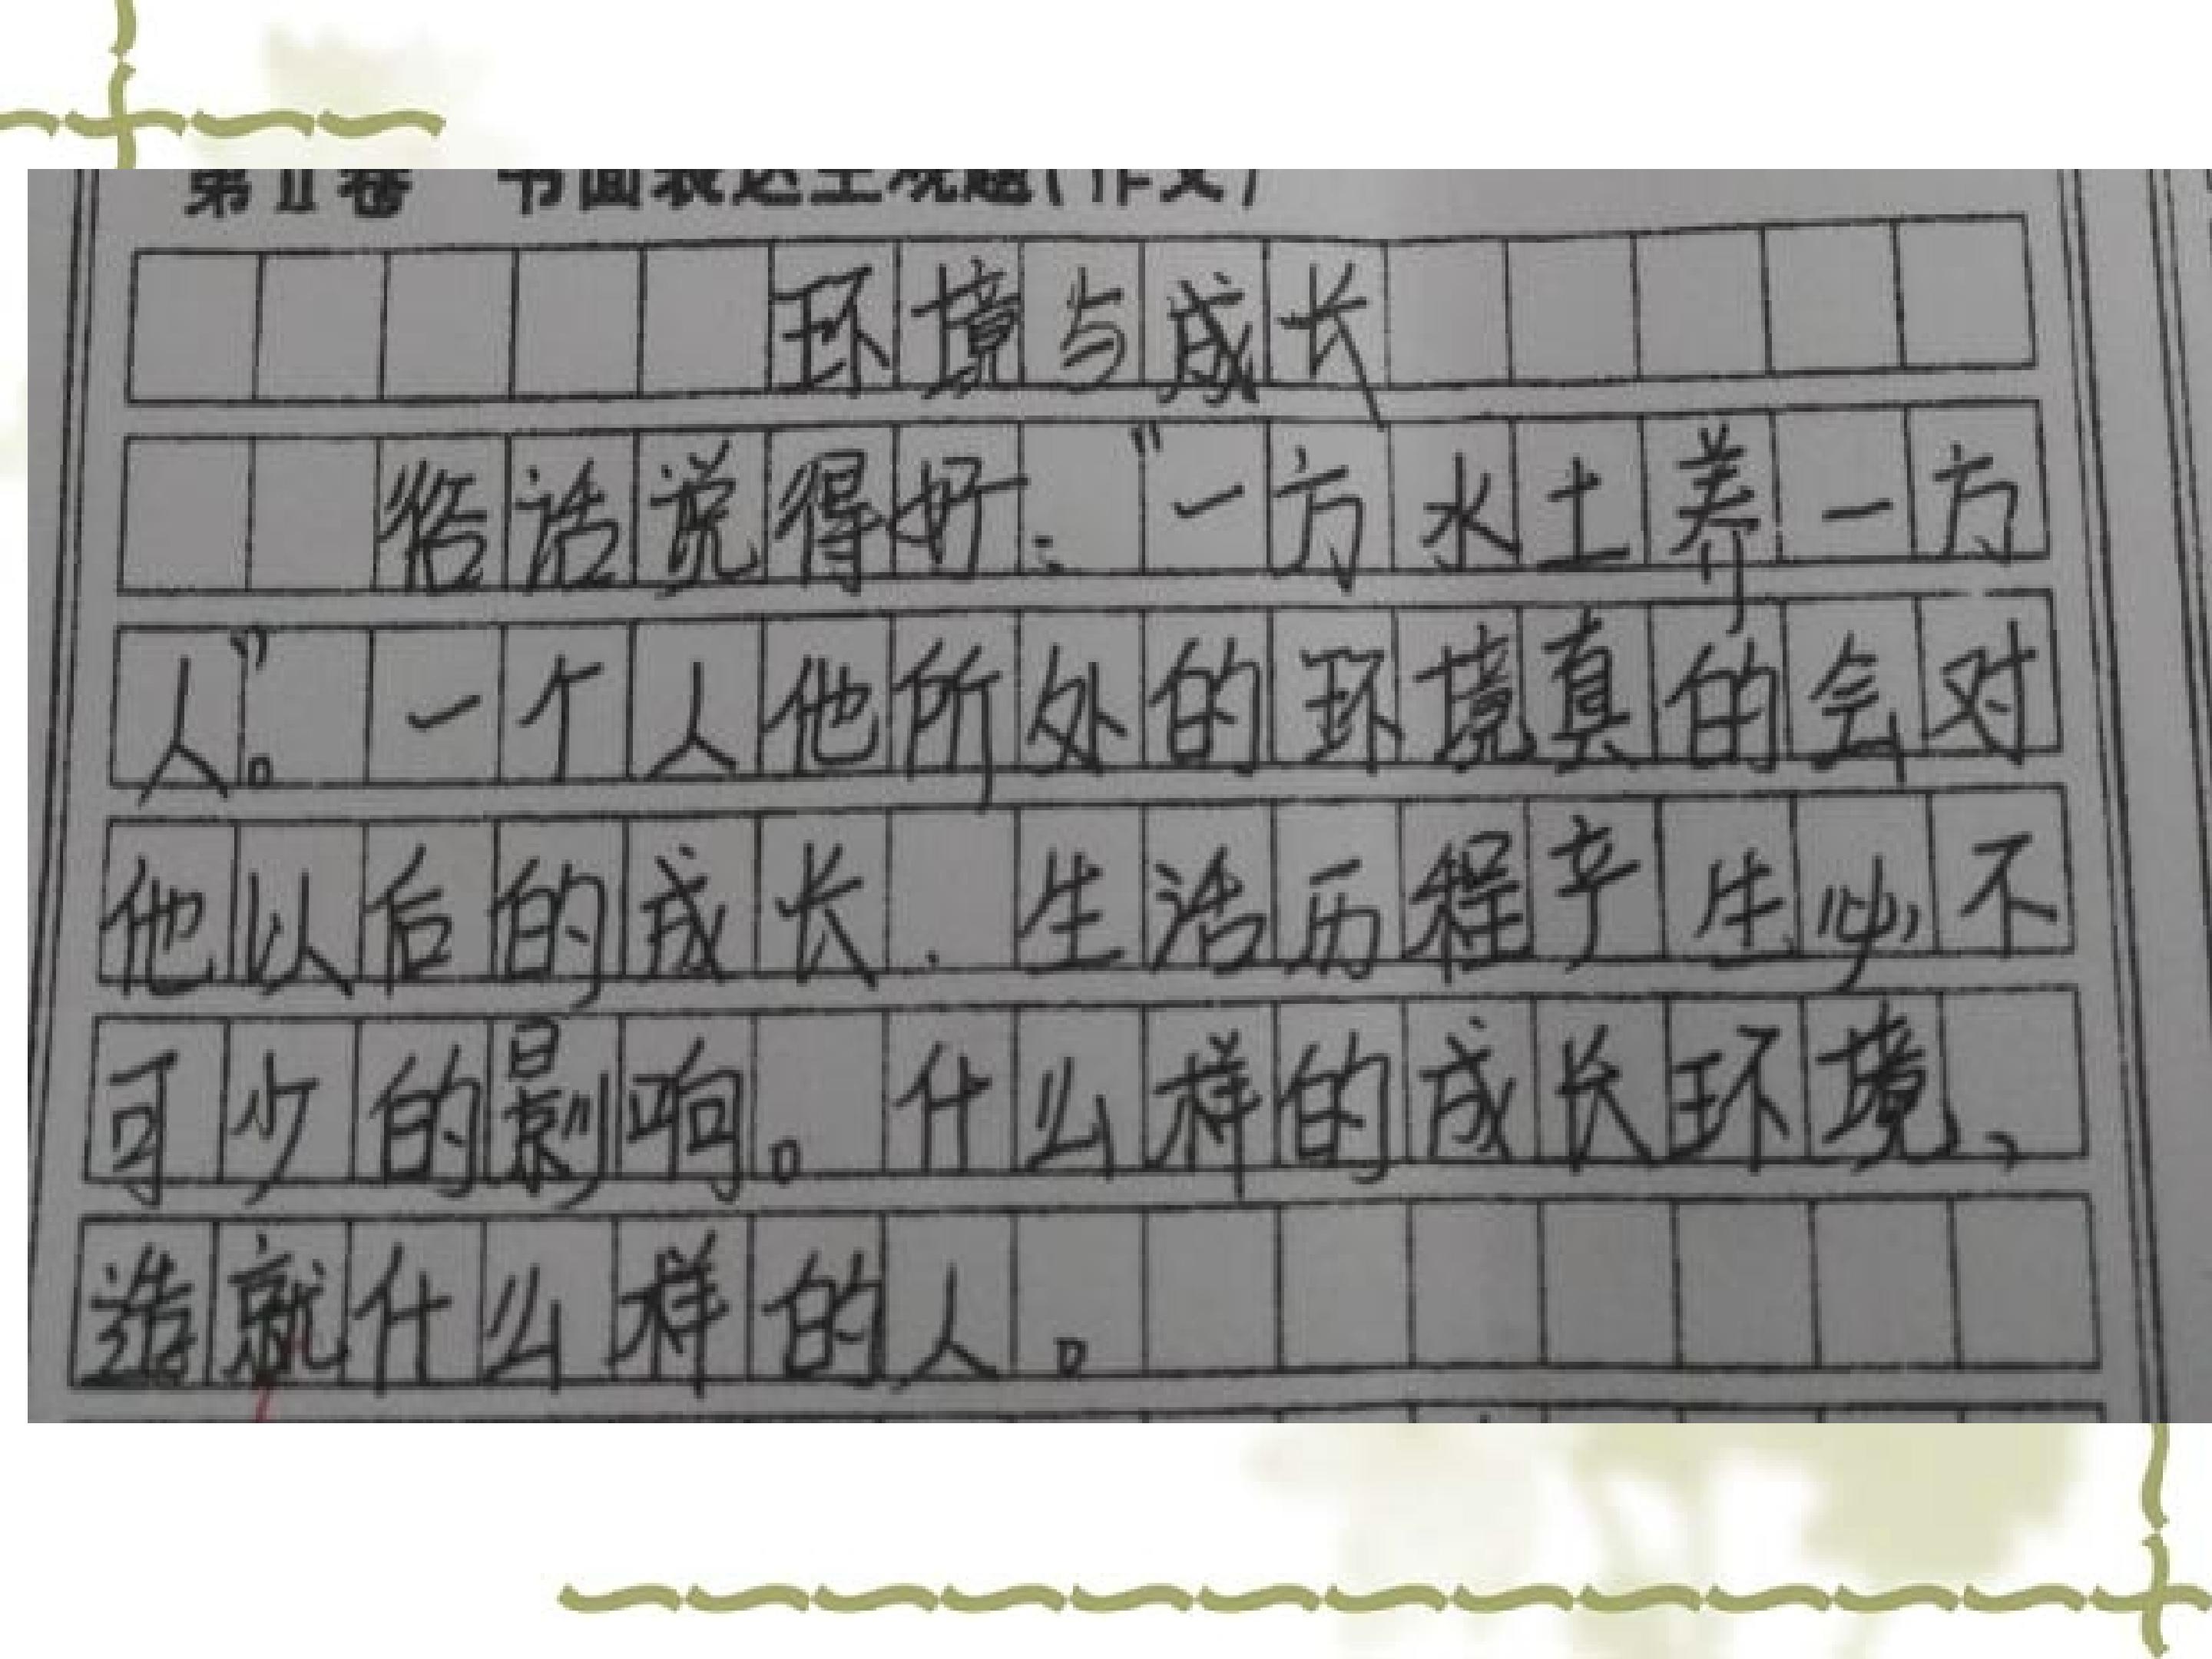 第Ⅱ卷 书面表达主观题(作文)
环境与成长
俗话说得好:“一方水土养一方
人”。一个人他所处的环境真的会对
他以后的成长、生活历程产生必不
可少的影响。什么样的成长环境、
造就什么样的人。